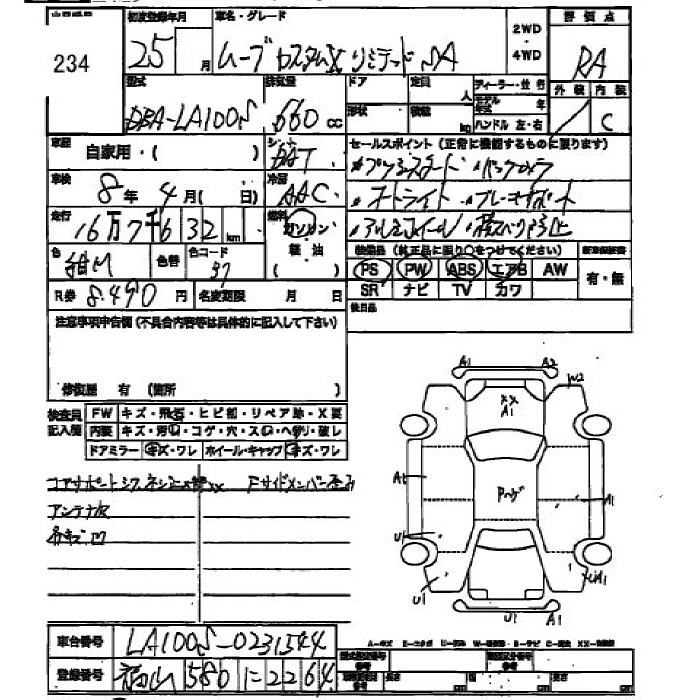 234
初度登録年月 車名・グレード 2WD・4WD 評価点
25 月 ムーブカスタムX リミテッド SA RA
型式 排気量 ドア 定員 人 ディーラー・並行 外装 内装
DBA-LA100S 660 cc 形状 積載 kg モデル年式 年 ハンドル 左・右 C
車歴 自家用・( ) シフト AT
セールスポイント(正常に機能するものに限ります)
プッシュスタート ・バックカメラ
車検 8年 4月( 日) 冷房 AAC
・オートライト ・ブレーキサポート
走行 16万7千632 km 燃料 ガソリン 軽油 ( )
・アルミホイール ・横スベリ防止
色 紺M 色替 色コード 37
装備品(純正品に限り○をつけてください) 新車保証書
PS PW ABS エアB AW 有・無
SR ナビ TV カワ
R券 8,490 円 名変期限 月 日
後日品
注意事項申告欄(不具合内容等は具体的に記入して下さい)
修復歴 有 (箇所 )
検査員記入欄 FW キズ・飛石・ヒビ割・リペア跡・X要
内装 キズ・汚レ・コゲ・穴・スレ・ヘタリ・破レ
ドアミラー キズ・ワレ ホイール・キャップ キズ・ワレ
コアサポート
アンテナ欠
A1 A2
W2
XX
A1
A1
A1
U1
U1
U1
A1
車台番号 LA100S-0231544
登録番号 福山 580 に 2264
A-キズ
cm cm cm